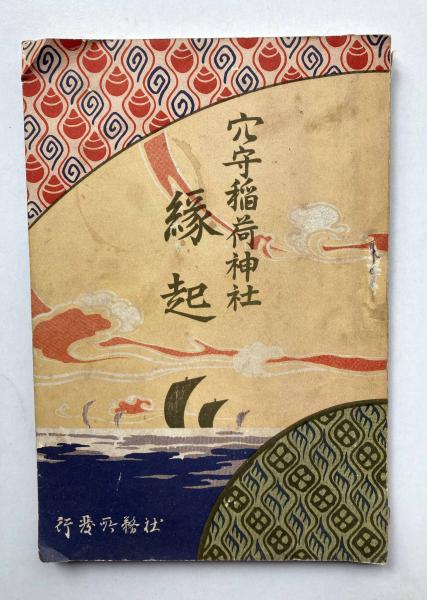 穴守稲荷神社
縁起
社務所發行